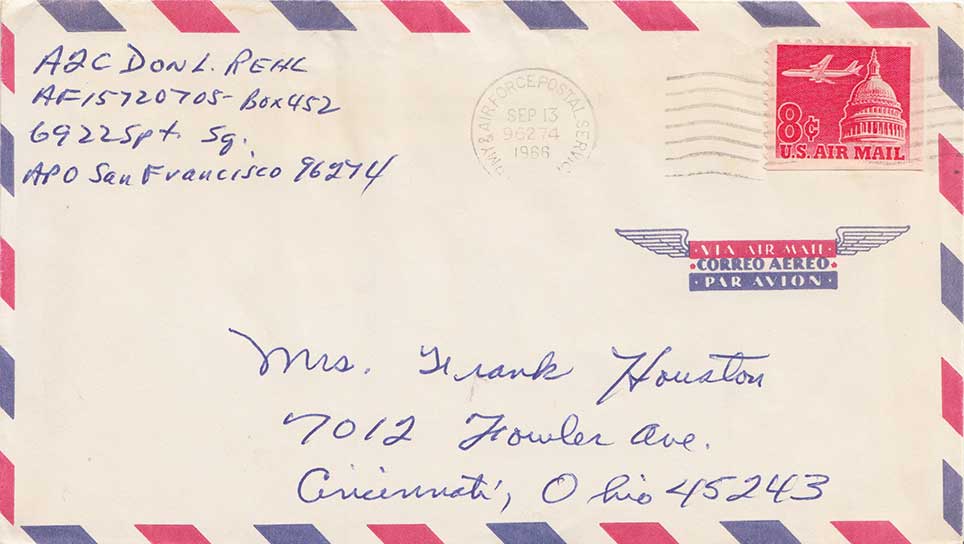 A2C DON L. REHL
AF15720705-Box452
6922 Spt. Sq.
APO San Francisco 96274
ARMY & AIR FORCE POSTAL SERVICE
SEP 13
96274
1966
8¢
U.S. AIR MAIL
· VIA AIR MAIL ·
• CORREO AEREO •
· PAR AVION ·
Mrs. Frank Houston
7012 Fowler Ave.
Cincinnati, Ohio 45243